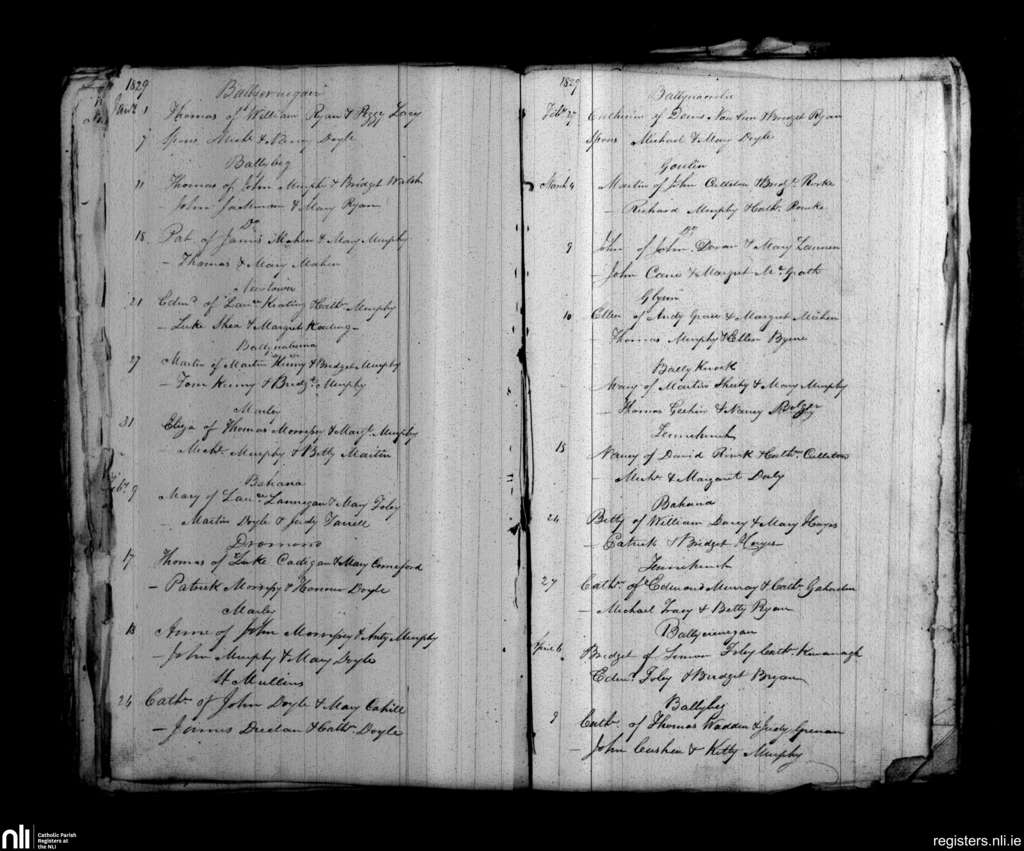 1829
Ballycrinegan
Janry 1 Thomas of William Ryan & Peggy Lacy
7 Spons Michl & Nancy Doyle
Ballybeg
11 Thomas of John Murphy & Bridget Walsh
— John Jackman & Mary Ryan
Do
18 Pat. of James Meher & Mary Murphy
— Thomas & Mary Maher
Newtown
21 Edmd of Lawce Keating & Cathn Murphy
— Luke Shea & Margret Keating
27 Martin of Martin Kinny & Bridget Murphy
— Tom Kinny & Bridgt Murphy
Marley
31 Eliza of Thomas Morrissy & Margt Murphy
— Michl Murphy & Betty Martin
Bahana
Febry 9 Mary of Lawce Lannegan & Mary Foley
— Martin Doyle & Judy Farrell
Dromond
17 Thomas of Luke Cadigan & Mary Comerford
— Patrick Morrissy & Honour Doyle
Marley
18 Anne of John Morrissy & Anty Murphy
— John Murphy & Mary Doyle
St Mullins
24 Cathn of John Doyle & Mary Cahill
— James Dreelan & Cathn Doyle
1829
Feby 27 Catherine of Denis Nowlan & Bridget Ryan
Spons Michael & Mary Doyle
Goulin
March 4 Martin of John Culleton & Bridgt Rorke
— Richard Murphy & Cathn Rourke
Do
9 John of John Doran & Mary Lannen
— John Cane & Margret McGrath
Glynn
10 Ellen of Andy Grace & Margret Meher
— Thomas Murphy & Ellen Byrne
Ballyknock
Mary of Martin Sheehy & Mary Murphy
— Thomas Geehin & Nancy Bolger
Tennehinch
18 Nancy of David Rinck & Cathn Culleton
— Michl & Margaret Daly
Bahana
24 Betty of William Darcy & Mary Hayes
— Patrick & Bridget Hayes
Tennehinch
27 Cathn of Edmond Murray & Cathn
— Michael Tracy & Betty Ryan
Ballycrinegan
April 6 Bridget of Simon Foley Cathn Kavanagh
Edmd Foley & Bridget Bryan
Ballybeg
9 Cathn of Thomas Wadden & Judy Grenan
— John Cushen & Kitty Murphy
nli
Catholic Parish
Registers at
the NLI
registers.nli.ie